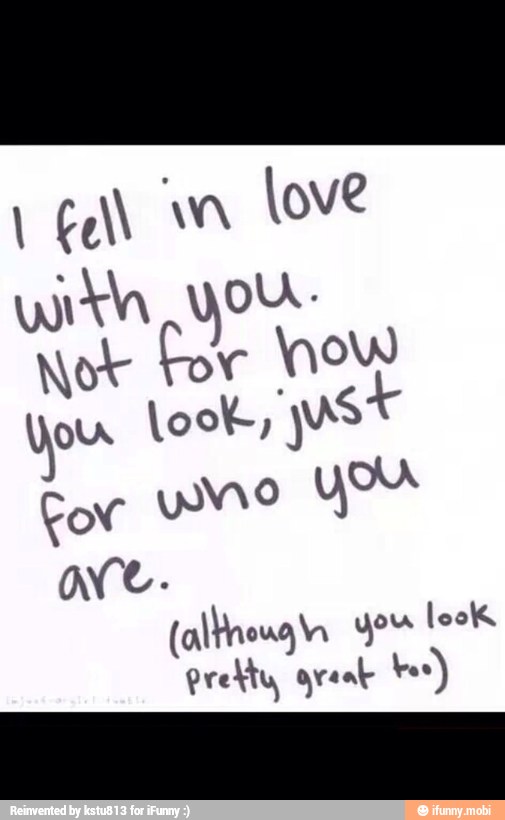 I fell in love
with you.
Not for how
you look, just
for who you
are.
(although you look
pretty great too)
Reinvented by kstu813 for iFunny :)
ifunny.mobi